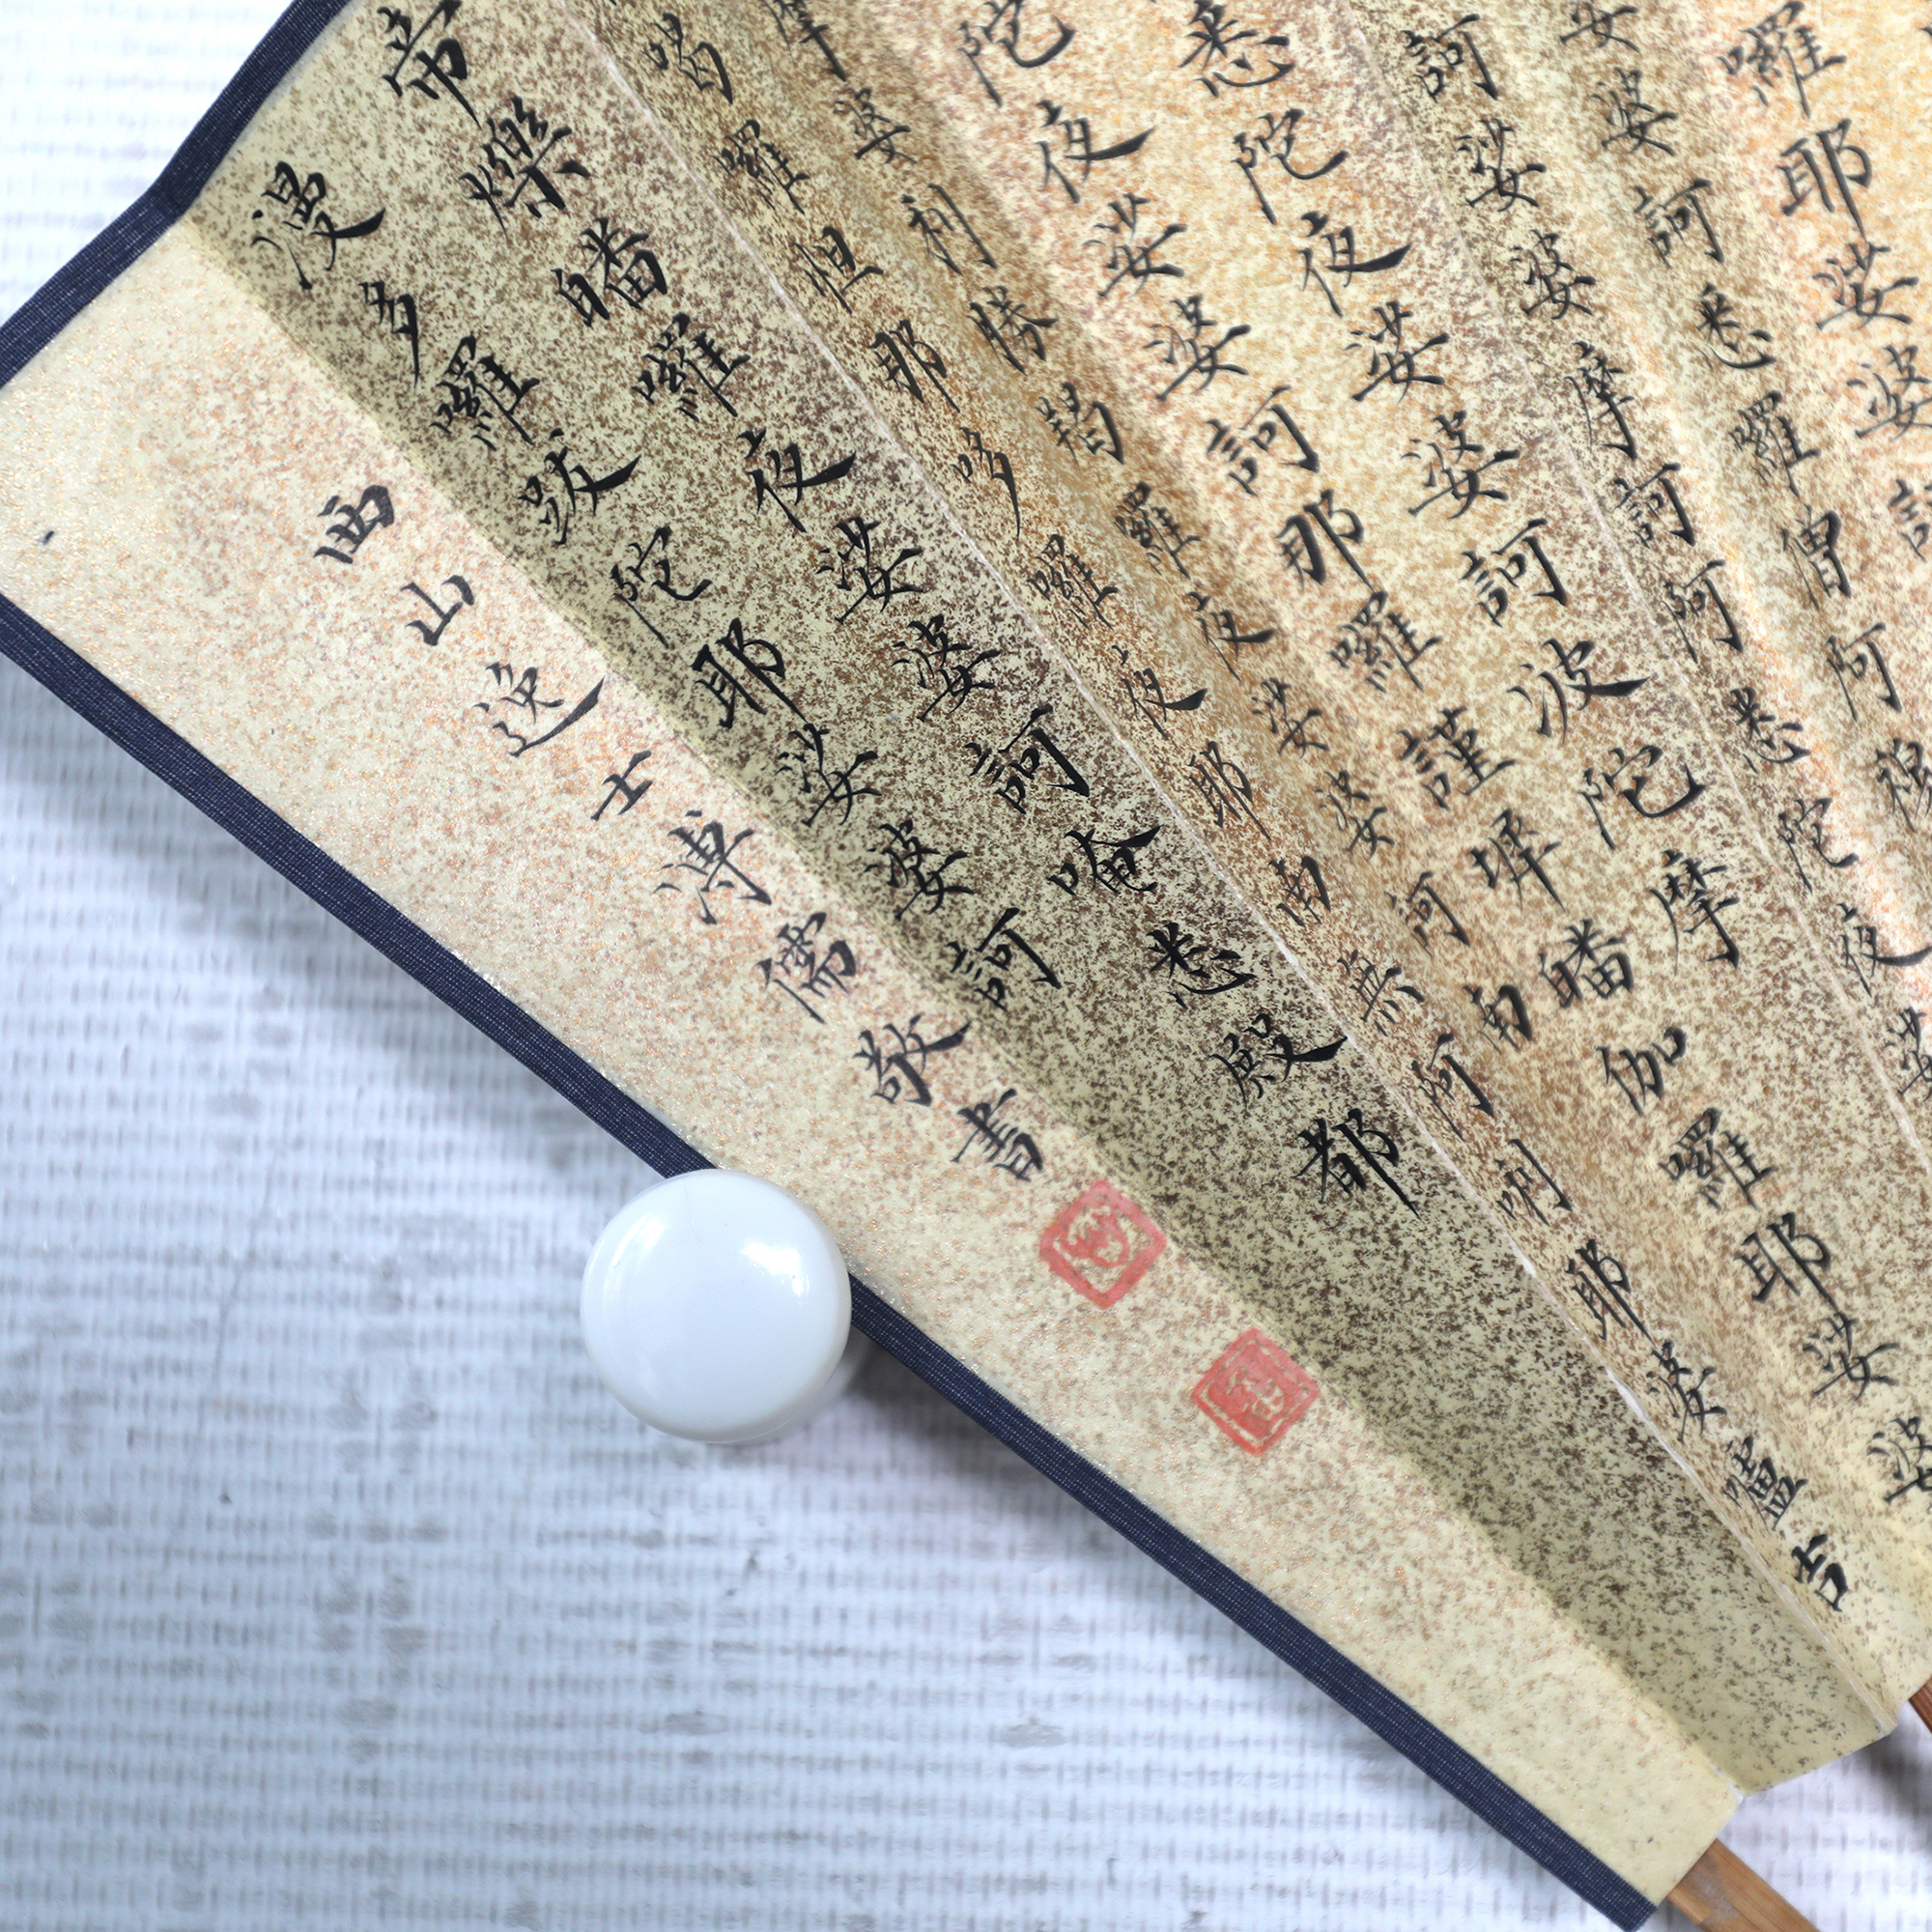 囉耶娑婆
娑婆訶悉囉僧阿穆
訶娑婆摩訶阿悉陀夜娑
悉陀夜娑婆訶波陀摩
陀夜娑婆訶那囉謹墀皤伽囉耶娑婆
摩婆利勝羯羅夜娑婆訶南
喝囉怛那哆囉夜耶南無阿唎耶婆嚧吉
帝爍皤囉夜娑婆訶唵悉殿都
漫多囉跋陀耶娑婆訶
西山逸士溥儒敬書